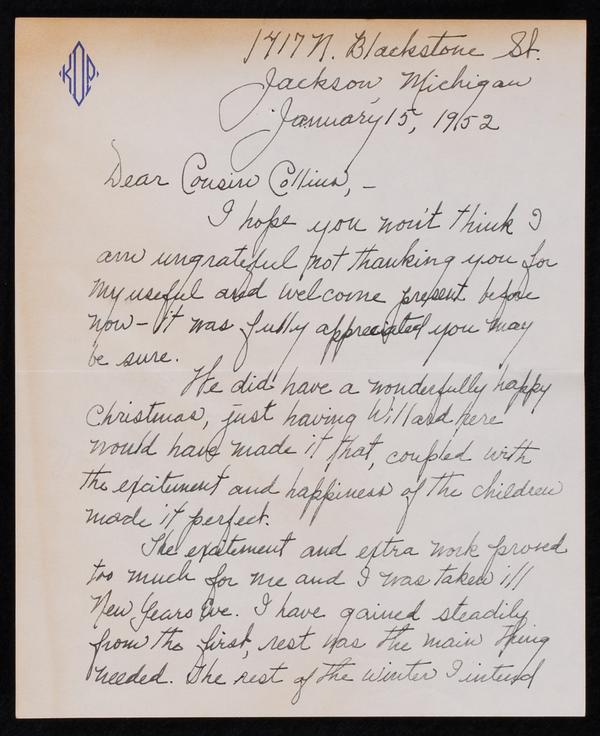 KDP
1417 N. Blackstone St.
Jackson Michigan
January 15, 1952
Dear Cousin Collins, -
I hope you won't think I
am ungrateful not thanking you for
my useful and welcome present before
now - it was fully appreciated you may
be sure.
We did have a wonderfully happy
Christmas, just having Willard here
would have made it that, coupled with
the excitement and happiness of the children
made it perfect.
The excitement and extra work proved
too much for me and I was taken ill
New Years Eve. I have gained steadily
from the first, rest was the main thing
needed. The rest of the winter I intend